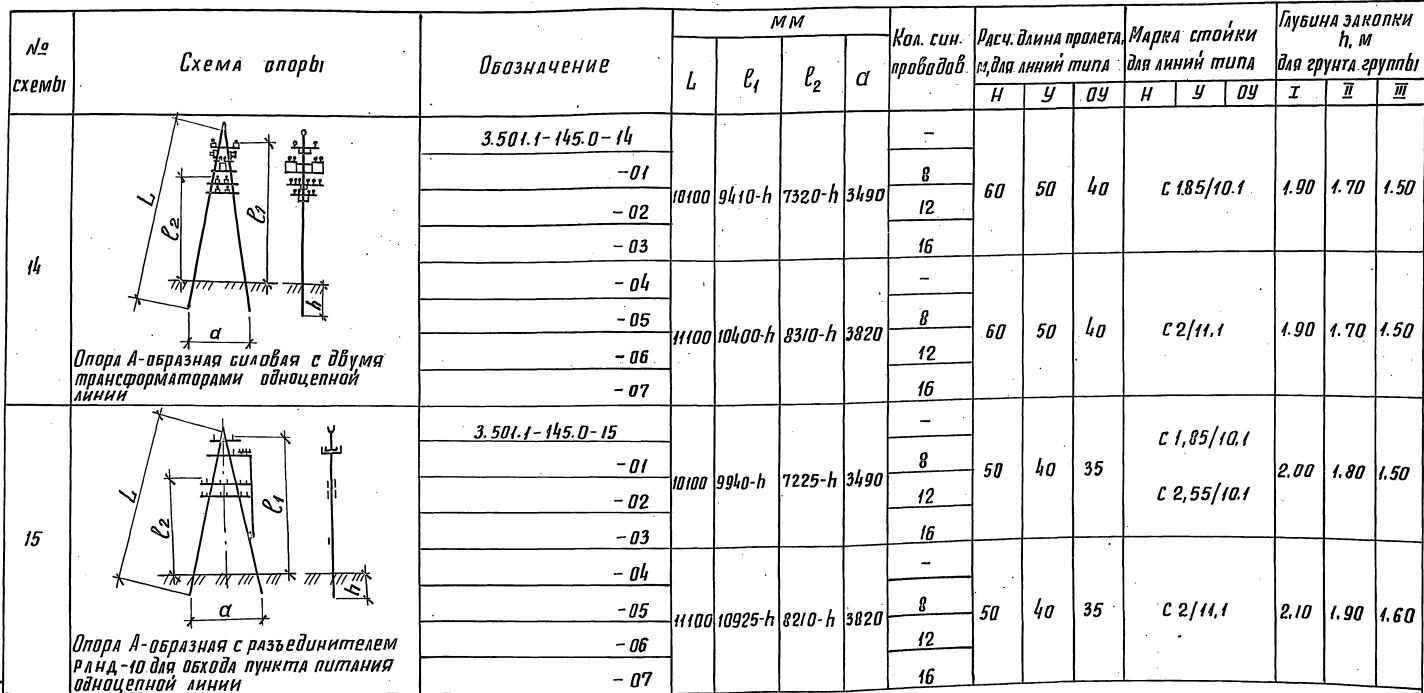 № схемы
Схема опоры
Обозначение
мм
L
ℓ₁
ℓ₂
а
Кол. син. проводов
Расч. длина пролета, м, для линий типа
Н У ОУ
Марка стойки для линий типа
Н У ОУ
Глубина закопки h, м для грунта группы
I II III
14
L
ℓ₂
ℓ₁
h
а
Опора А-образная силовая с двумя
трансформаторами одноцепной
линии
3.501.1-145.0-14
-01
-02
-03
10100 9410-h 7320-h 3490
-
8
12
16
60 50 40
С 1.85/10.1
1.90 1.70 1.50
-04
-05
-06
-07
11100 10400-h 8310-h 3820
-
8
12
16
60 50 40
С 2/11.1
1.90 1.70 1.50
15
L
ℓ₂
ℓ₁
h
а
Опора А-образная с разъединителем
РЛНД-10 для обхода пункта питания
одноцепной линии
3.501.1-145.0-15
-01
-02
-03
10100 9940-h 7225-h 3490
-
8
12
16
50 40 35
С 1,85/10.1
С 2,55/10.1
2.00 1.80 1.50
-04
-05
-06
-07
11100 10925-h 8210-h 3820
-
8
12
16
50 40 35
С 2/11,1
2.10 1.90 1.60